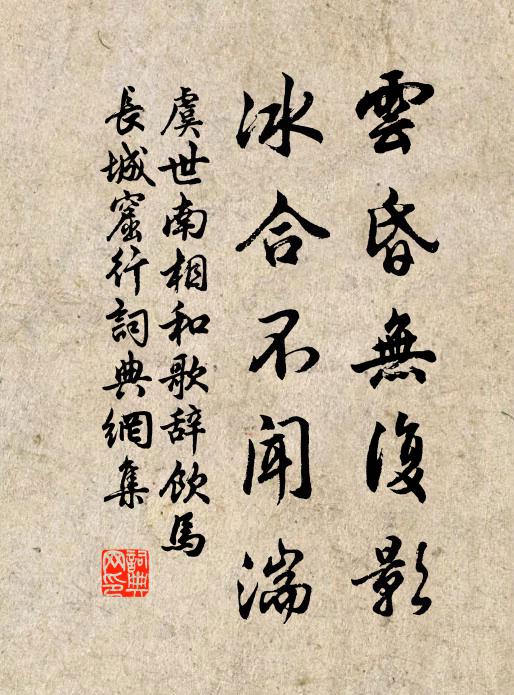 雲昏無復影
冰合不聞湍
虞世南相和歌辞飲馬
長城窟行詞典網集
詞典
网印